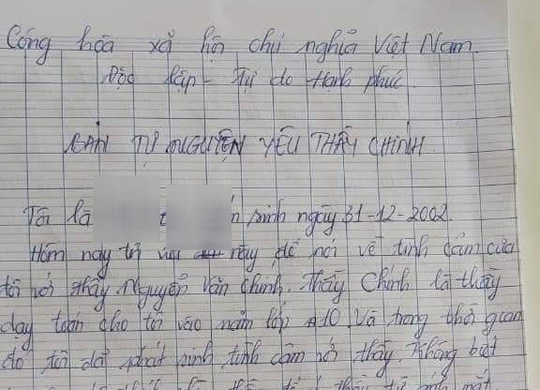 Cộng hòa xã hội chủ nghĩa Việt Nam.
Độc lập - Tự do - Hạnh phúc.
BẢN TỰ NGUYỆN YÊU THẦY CHÍNH
Tôi là sinh ngày 31-12-2002.
Hôm nay tôi này để nói về tình cảm của
tôi với thầy Nguyễn Văn Chính. Thầy Chính là thầy
dạy toán cho tôi vào năm lớp 10. Và trong thời gian
đó tôi đã phát sinh tình cảm với thầy. Không biết